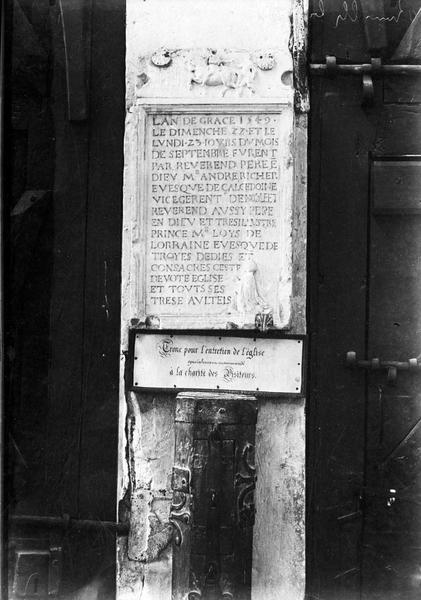 LAN DE GRACE 1549.
LE DIMENCHE 22 ET LE
LVNDI 23 IOVRS DV MOIS
DE SEPTEMBRE FVRENT
PAR REVEREND PERE E
DIEV Mᴿ ANDRE RICHER
EVESQVE DE CALCEDOINE
VICEGERENT DE
REVEREND AVSSY PERE
EN DIEV ET TRESILLVSTRE
PRINCE Mᴿ LOYS DE
LORRAINE EVESQVE DE
TROYES DEDIES ET
CONSACRES CESTE
DEVOTE EGLISE
ET TOVTS SES
TRESE AVLTELS
Tronc pour l'entretien de l'église
spécialement recommandé
à la charité des Visiteurs.